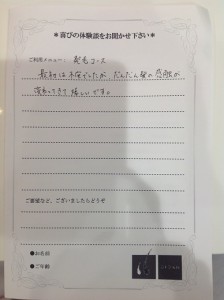 ＊喜びの体験談をお聞かせ下さい＊
ご利用メニュー： 髪毛コース
最初は不安でしたが、だんだん髪の感触が
変わってきて嬉しいです。
ご要望など、ございましたらどうぞ
●お名前
●ご年齢